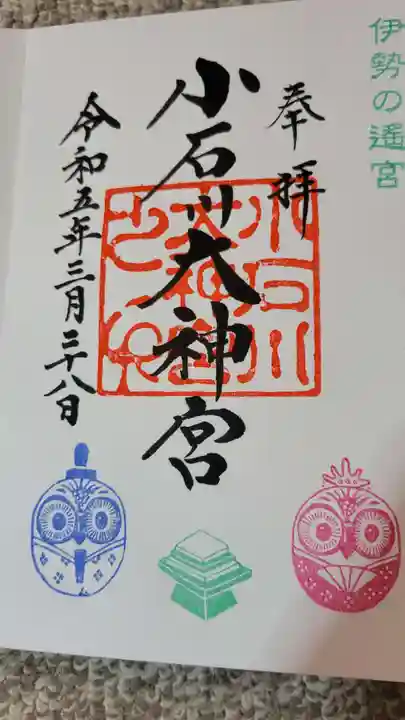 伊勢の遙宮
奉拝
小石川大神宮
令和五年三月二十八日
小石川
大神宮
之印